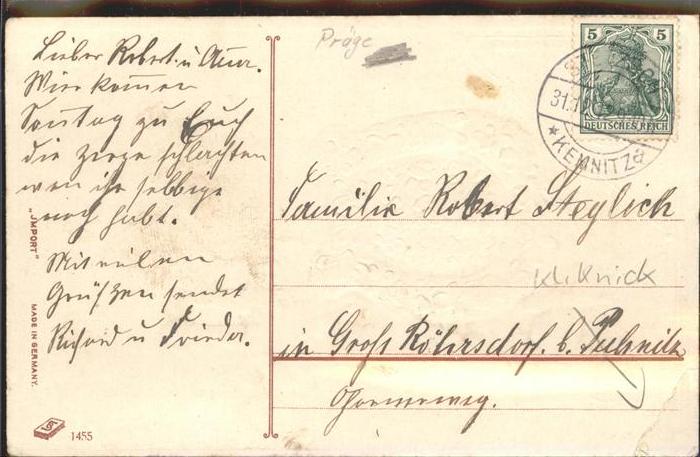 Lieber Robert u Anna.
Wier komen
Sontag zu Euch
die zirge schlachten
wen ihr selbige
noch habt.
Mit vielen
Grüßzen sendet
Richard u Frieda.
"JMPORT"
MADE IN GERMANY.
1455
Präge
5 5
DEUTSCHES REICH
31.12
* KEMNITZ
Familie Robert Steglich
kl. Knick
in Groß Röhrsdorf. b. Pulsnitz